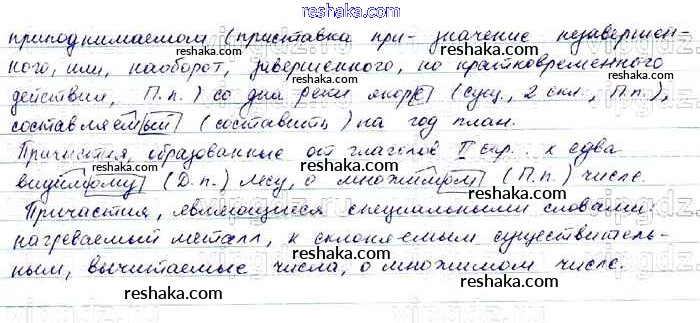 reshaka.com
приподнимаемом (приставка при- значение незавершен-
ного, или, наоборот, завершенного, но кратковременного
действия, П.п.) со дна реки якоре (сущ., 2 скл., П.п.),
составляемый (составить) на год план.
Причастия, образованные от глаголов II спр.: к едва
видимому (Д.п.) лесу, о множимом (П.п.) числе.
Причастия, являющиеся специальными словами:
нагреваемый металл, к склоняемым существитель-
ным, вычитаемые числа, о множимом числе.
reshaka.com